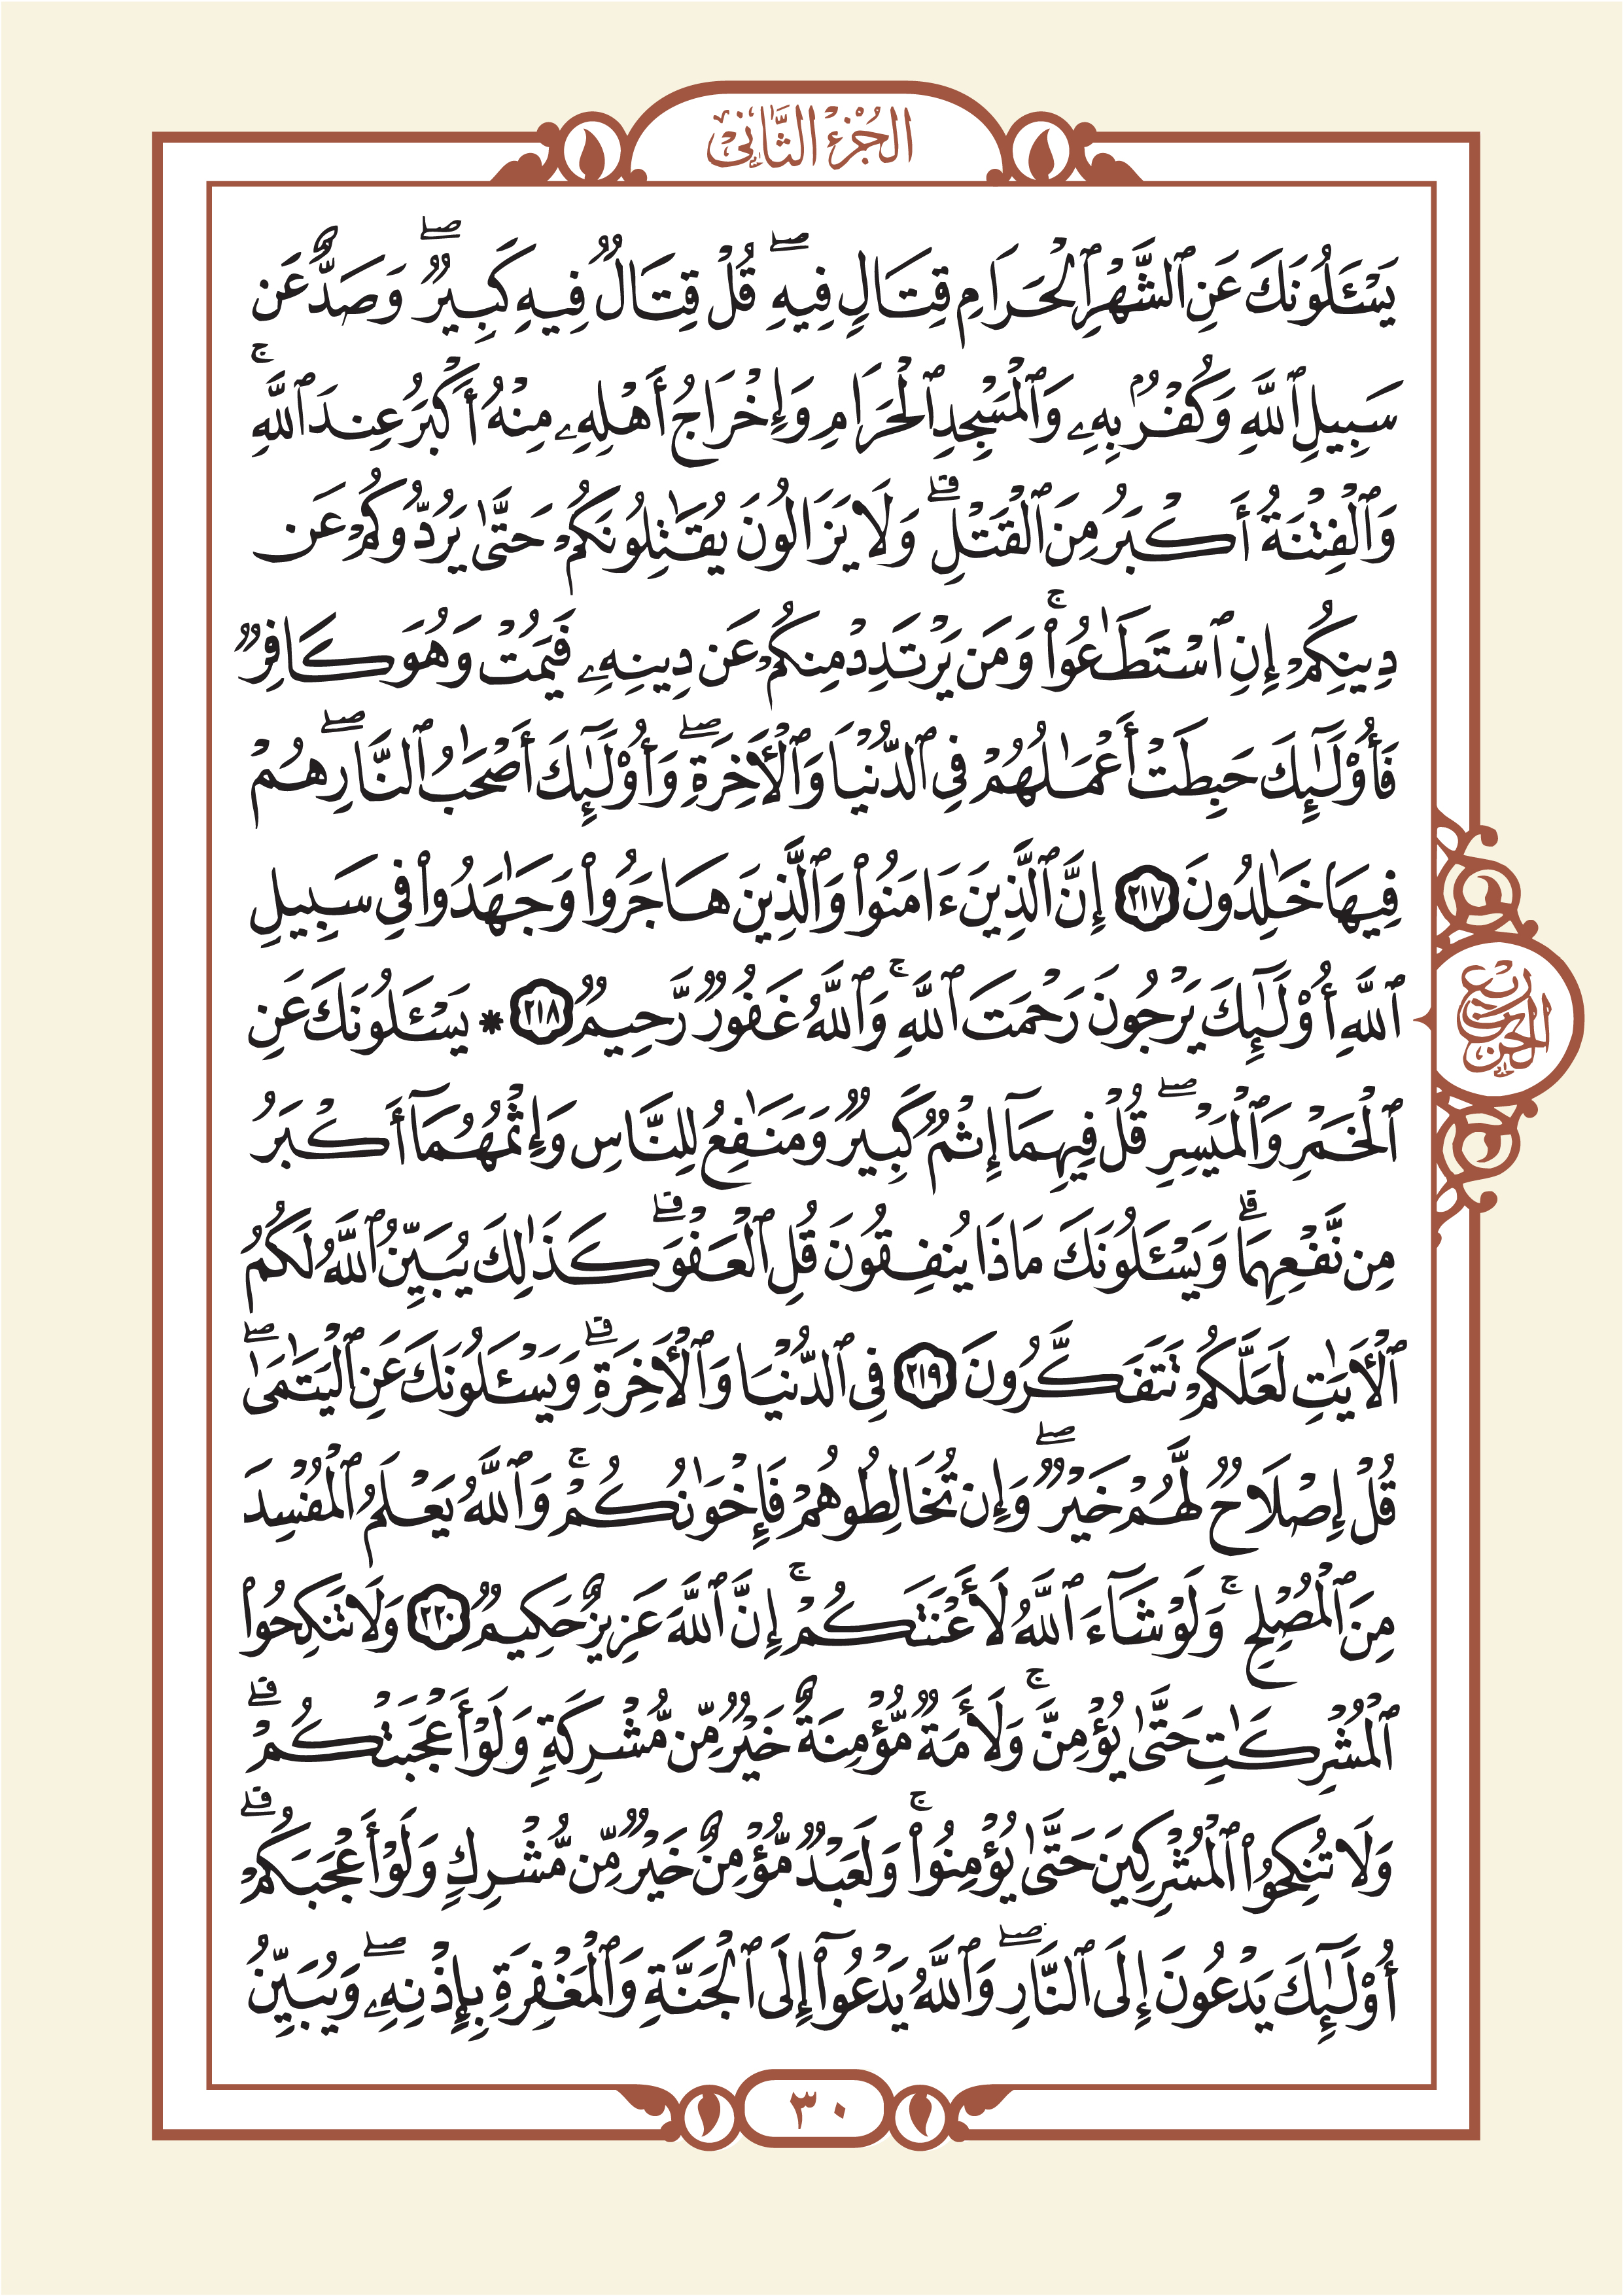 الجُزْءُ الثَّانِي
يَسْـَٔلُونَكَ عَنِ ٱلشَّهْرِ ٱلْحَرَامِ قِتَالٍ فِيهِ ۖ قُلْ قِتَالٌ فِيهِ كَبِيرٌ ۖ وَصَدٌّ عَن
سَبِيلِ ٱللَّهِ وَكُفْرٌۢ بِهِۦ وَٱلْمَسْجِدِ ٱلْحَرَامِ وَإِخْرَاجُ أَهْلِهِۦ مِنْهُ أَكْبَرُ عِندَ ٱللَّهِ ۚ
وَٱلْفِتْنَةُ أَكْبَرُ مِنَ ٱلْقَتْلِ ۗ وَلَا يَزَالُونَ يُقَـٰتِلُونَكُمْ حَتَّىٰ يَرُدُّوكُمْ عَن
دِينِكُمْ إِنِ ٱسْتَطَـٰعُوا۟ ۚ وَمَن يَرْتَدِدْ مِنكُمْ عَن دِينِهِۦ فَيَمُتْ وَهُوَ كَافِرٌ
فَأُو۟لَـٰٓئِكَ حَبِطَتْ أَعْمَـٰلُهُمْ فِى ٱلدُّنْيَا وَٱلْـَٔاخِرَةِ ۖ وَأُو۟لَـٰٓئِكَ أَصْحَـٰبُ ٱلنَّارِ ۖ هُمْ
فِيهَا خَـٰلِدُونَ ٢١٧ إِنَّ ٱلَّذِينَ ءَامَنُوا۟ وَٱلَّذِينَ هَاجَرُوا۟ وَجَـٰهَدُوا۟ فِى سَبِيلِ
ٱللَّهِ أُو۟لَـٰٓئِكَ يَرْجُونَ رَحْمَتَ ٱللَّهِ ۚ وَٱللَّهُ غَفُورٌ رَّحِيمٌ ٢١٨ * يَسْـَٔلُونَكَ عَنِ
رُبْعُ الحِزْبِ
ٱلْخَمْرِ وَٱلْمَيْسِرِ ۖ قُلْ فِيهِمَآ إِثْمٌ كَبِيرٌ وَمَنَـٰفِعُ لِلنَّاسِ وَإِثْمُهُمَآ أَكْبَرُ
مِن نَّفْعِهِمَا ۗ وَيَسْـَٔلُونَكَ مَاذَا يُنفِقُونَ قُلِ ٱلْعَفْوَ ۗ كَذَٰلِكَ يُبَيِّنُ ٱللَّهُ لَكُمُ
ٱلْـَٔايَـٰتِ لَعَلَّكُمْ تَتَفَكَّرُونَ ٢١٩ فِى ٱلدُّنْيَا وَٱلْـَٔاخِرَةِ ۗ وَيَسْـَٔلُونَكَ عَنِ ٱلْيَتَـٰمَىٰ ۖ
قُلْ إِصْلَاحٌ لَّهُمْ خَيْرٌ ۖ وَإِن تُخَالِطُوهُمْ فَإِخْوَٰنُكُمْ ۚ وَٱللَّهُ يَعْلَمُ ٱلْمُفْسِدَ
مِنَ ٱلْمُصْلِحِ ۚ وَلَوْ شَآءَ ٱللَّهُ لَأَعْنَتَكُمْ ۚ إِنَّ ٱللَّهَ عَزِيزٌ حَكِيمٌ ٢٢٠ وَلَا تَنكِحُوا۟
ٱلْمُشْرِكَـٰتِ حَتَّىٰ يُؤْمِنَّ ۚ وَلَأَمَةٌ مُّؤْمِنَةٌ خَيْرٌ مِّن مُّشْرِكَةٍ وَلَوْ أَعْجَبَتْكُمْ ۗ
وَلَا تُنكِحُوا۟ ٱلْمُشْرِكِينَ حَتَّىٰ يُؤْمِنُوا۟ ۚ وَلَعَبْدٌ مُّؤْمِنٌ خَيْرٌ مِّن مُّشْرِكٍ وَلَوْ أَعْجَبَكُمْ ۗ
أُو۟لَـٰٓئِكَ يَدْعُونَ إِلَى ٱلنَّارِ ۖ وَٱللَّهُ يَدْعُوٓا۟ إِلَى ٱلْجَنَّةِ وَٱلْمَغْفِرَةِ بِإِذْنِهِۦ ۖ وَيُبَيِّنُ
٣٠